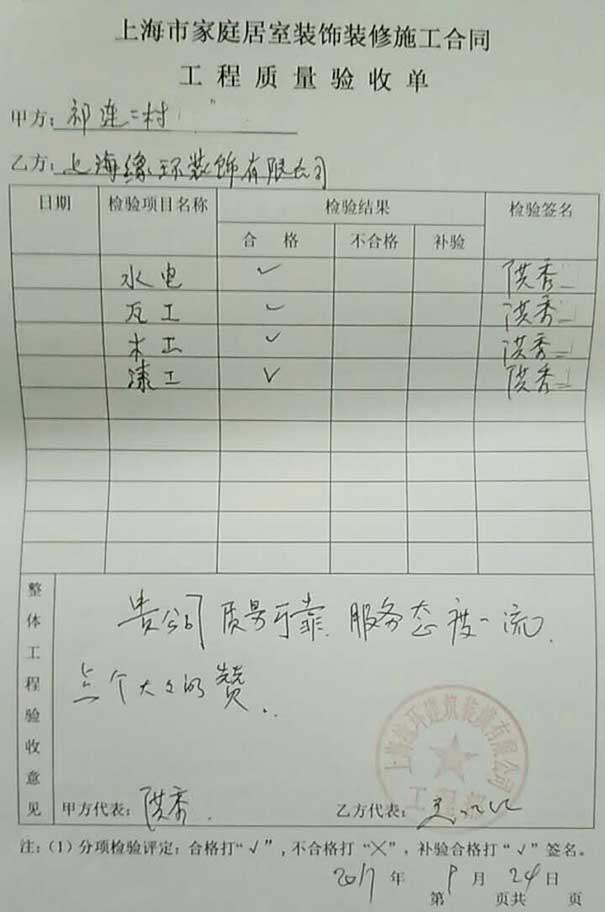 上海市家庭居室装饰装修施工合同
工程质量验收单
甲方：祁连二村
乙方：上海缘环装饰有限公司
日期 检验项目名称 检验结果 检验签名
合格 不合格 补验
水电 ✓ 洪秀
瓦工 ✓ 洪秀
木工 ✓ 洪秀
漆工 ✓ 洪秀
整体工程验收意见
贵公司质量可靠 服务态度一流.
点个大大的赞..
上海缘环建筑装潢有限公司
甲方代表：洪秀. 乙方代表：
注：（1）分项检验评定：合格打“√”，不合格打“╳”，补验合格打“√”签名。
2017年9月24日
第 页共 页